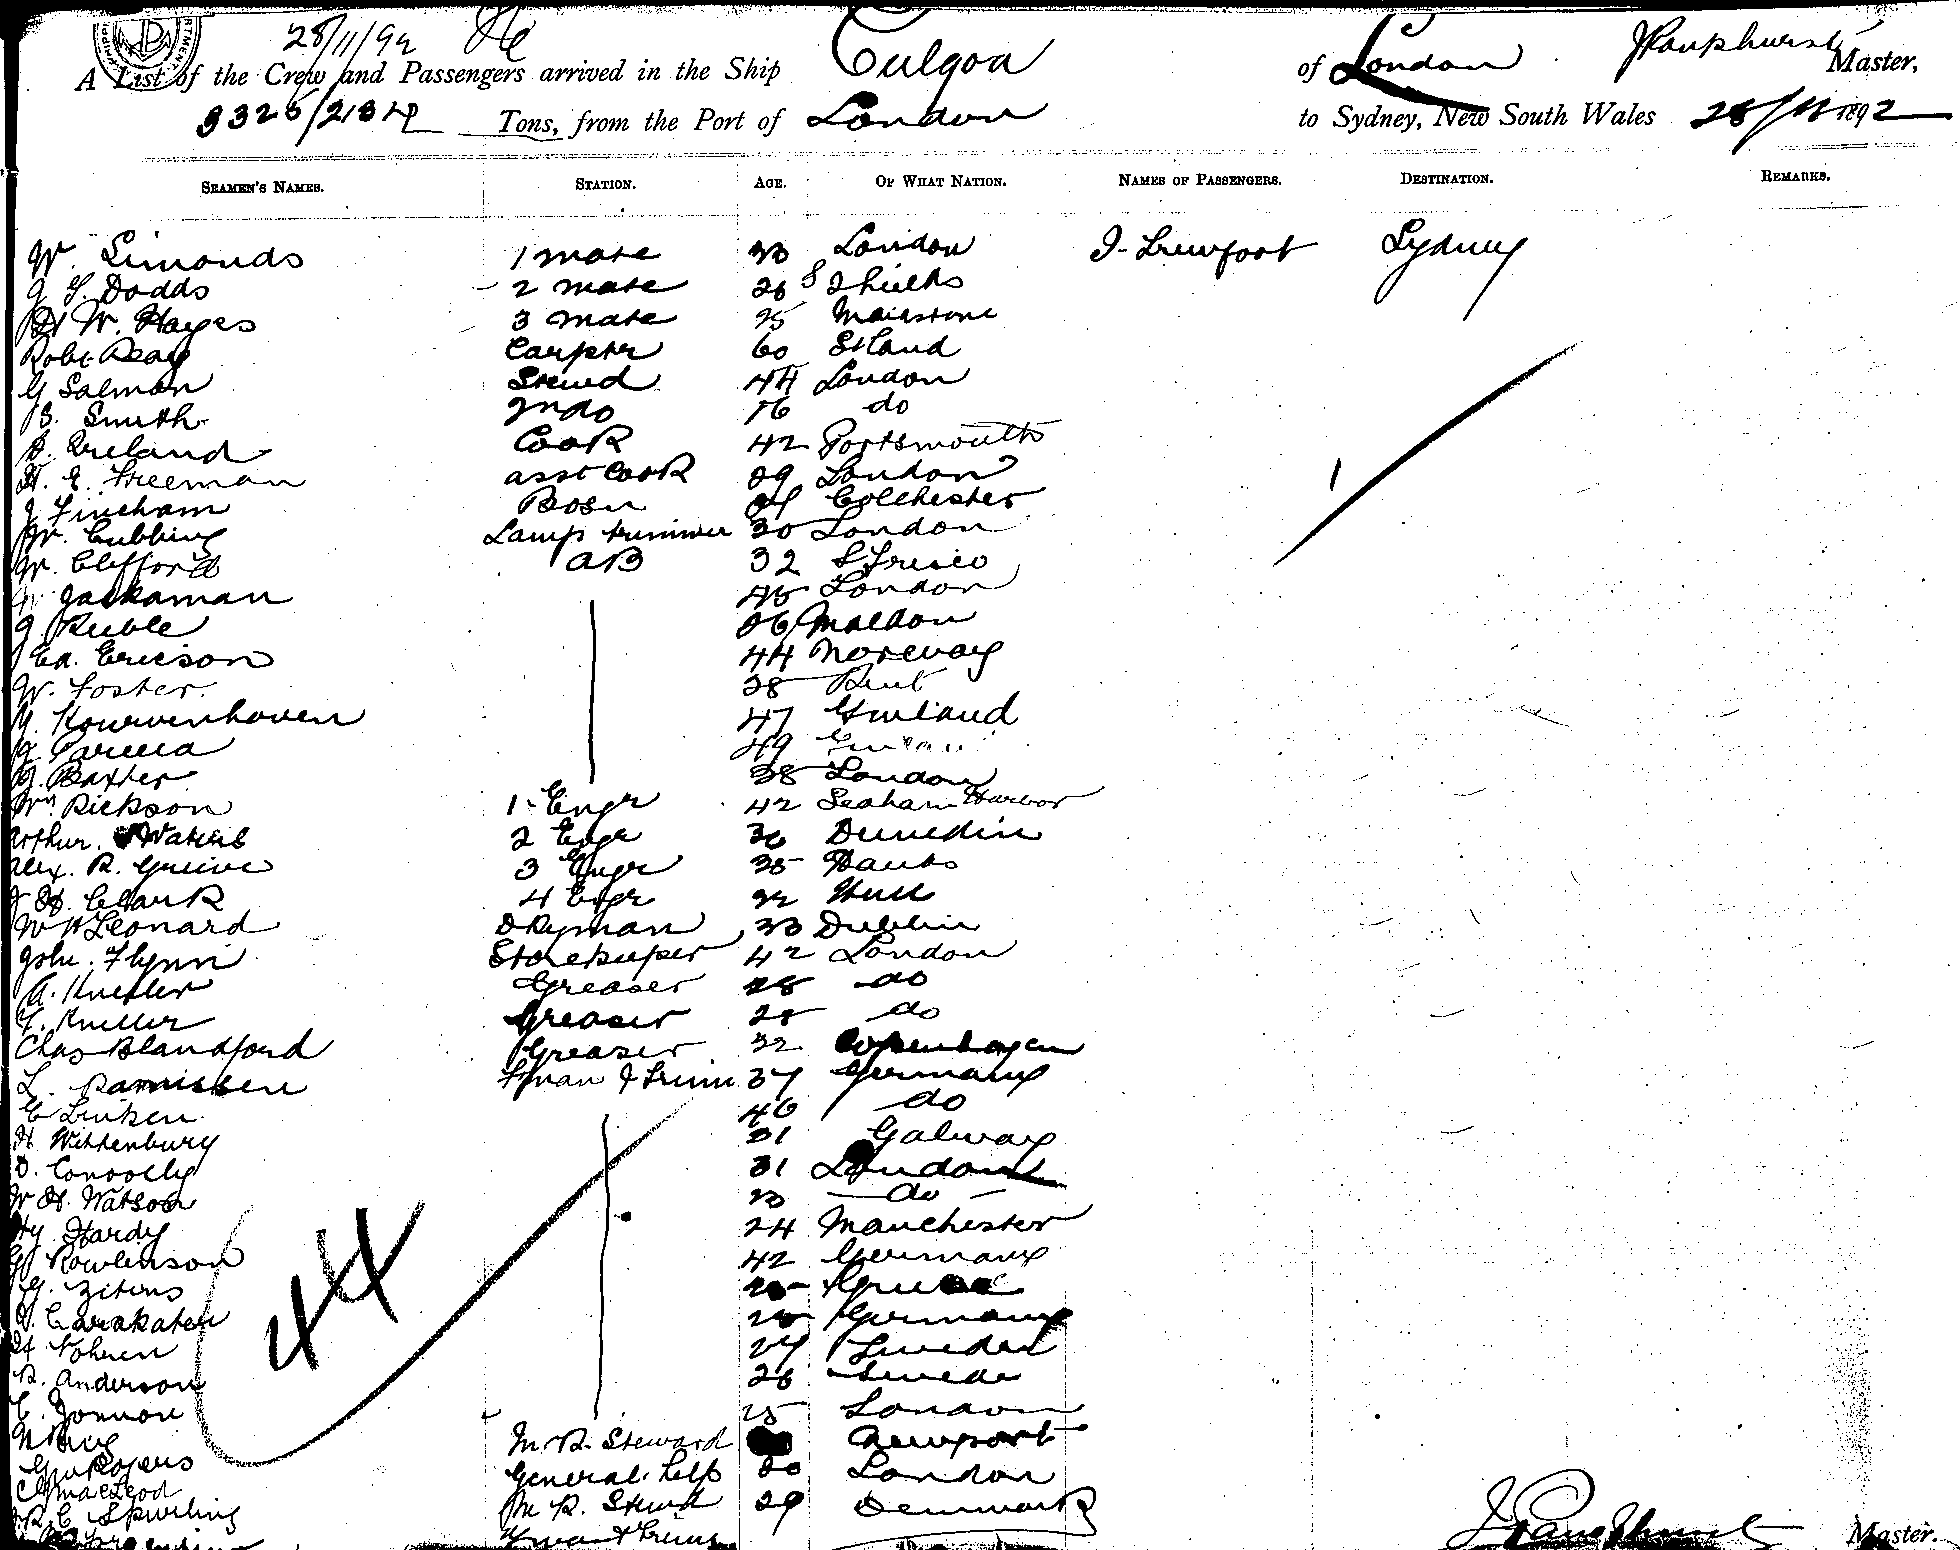 28/11/92
A List of the Crew and Passengers arrived in the Ship Culgoa of London J Pankhurst Master,
3325/2184 Tons, from the Port of London to Sydney, New South Wales 28/11 1892
SEAMEN'S NAMES. STATION. AGE. OF WHAT NATION. NAMES OF PASSENGERS. DESTINATION. REMARKS.
W. Simonds 1 mate 33 London Sydney
J. Dodds 2 mate 26 S Shields
H W. Hayes 3 mate 25 Maidstone
Robt Carptr 60
G Salmon Stewd 44 London
B. Smith 2nd do 16 do
Ireland Cook 42 Portsmouth
H. E. Freeman asst Cook 29 London
J Fincham Bosn Colchester
W. Cubbing Lamp trimmer 30 London
W. Clifford AB 32 S Frisco
Jackaman 45 London
J. Keeble 26 Maldon
Ed. Ericson 44 Norway
W. Foster 28 Kent
Kouwenhoven 47
49
J. Baxter 38 London
Wm Dickson 1 Engr 42 Seaham Harbor
Arthur Waters 2 Engr 36 Dunedin
Alex. R. Greive 3 Engr 35 Hants
J H. Clark 4 Engr 22 Hull
W H Leonard Dkyman 33 Dublin
John Flynn Storekeeper 42 London
A. Kneller Greaser 28 do
F. Kneller Greaser 28 do
Chas Blandford Greaser 32 Copenhagen
L. Fman & Trimr 37 Germany
C Linken 40 do
H Wittenbury 31 Galway
D. Conoolly 31 London
W H. Watson 23 do
Hy Hardy 24 Manchester
G Rowlenson 42 Germany
G. Zitens
Carakater Germany
H Nohren 27 Sweden
R. Anderson 26 Swede
C. 25 London
M. R. Steward Newport
Rogers General help 20 London
C MacLeod M R. Stewd 29 Denmark
R. C Spurling Fman & Trimr
44
1
J Pankhurst Master.